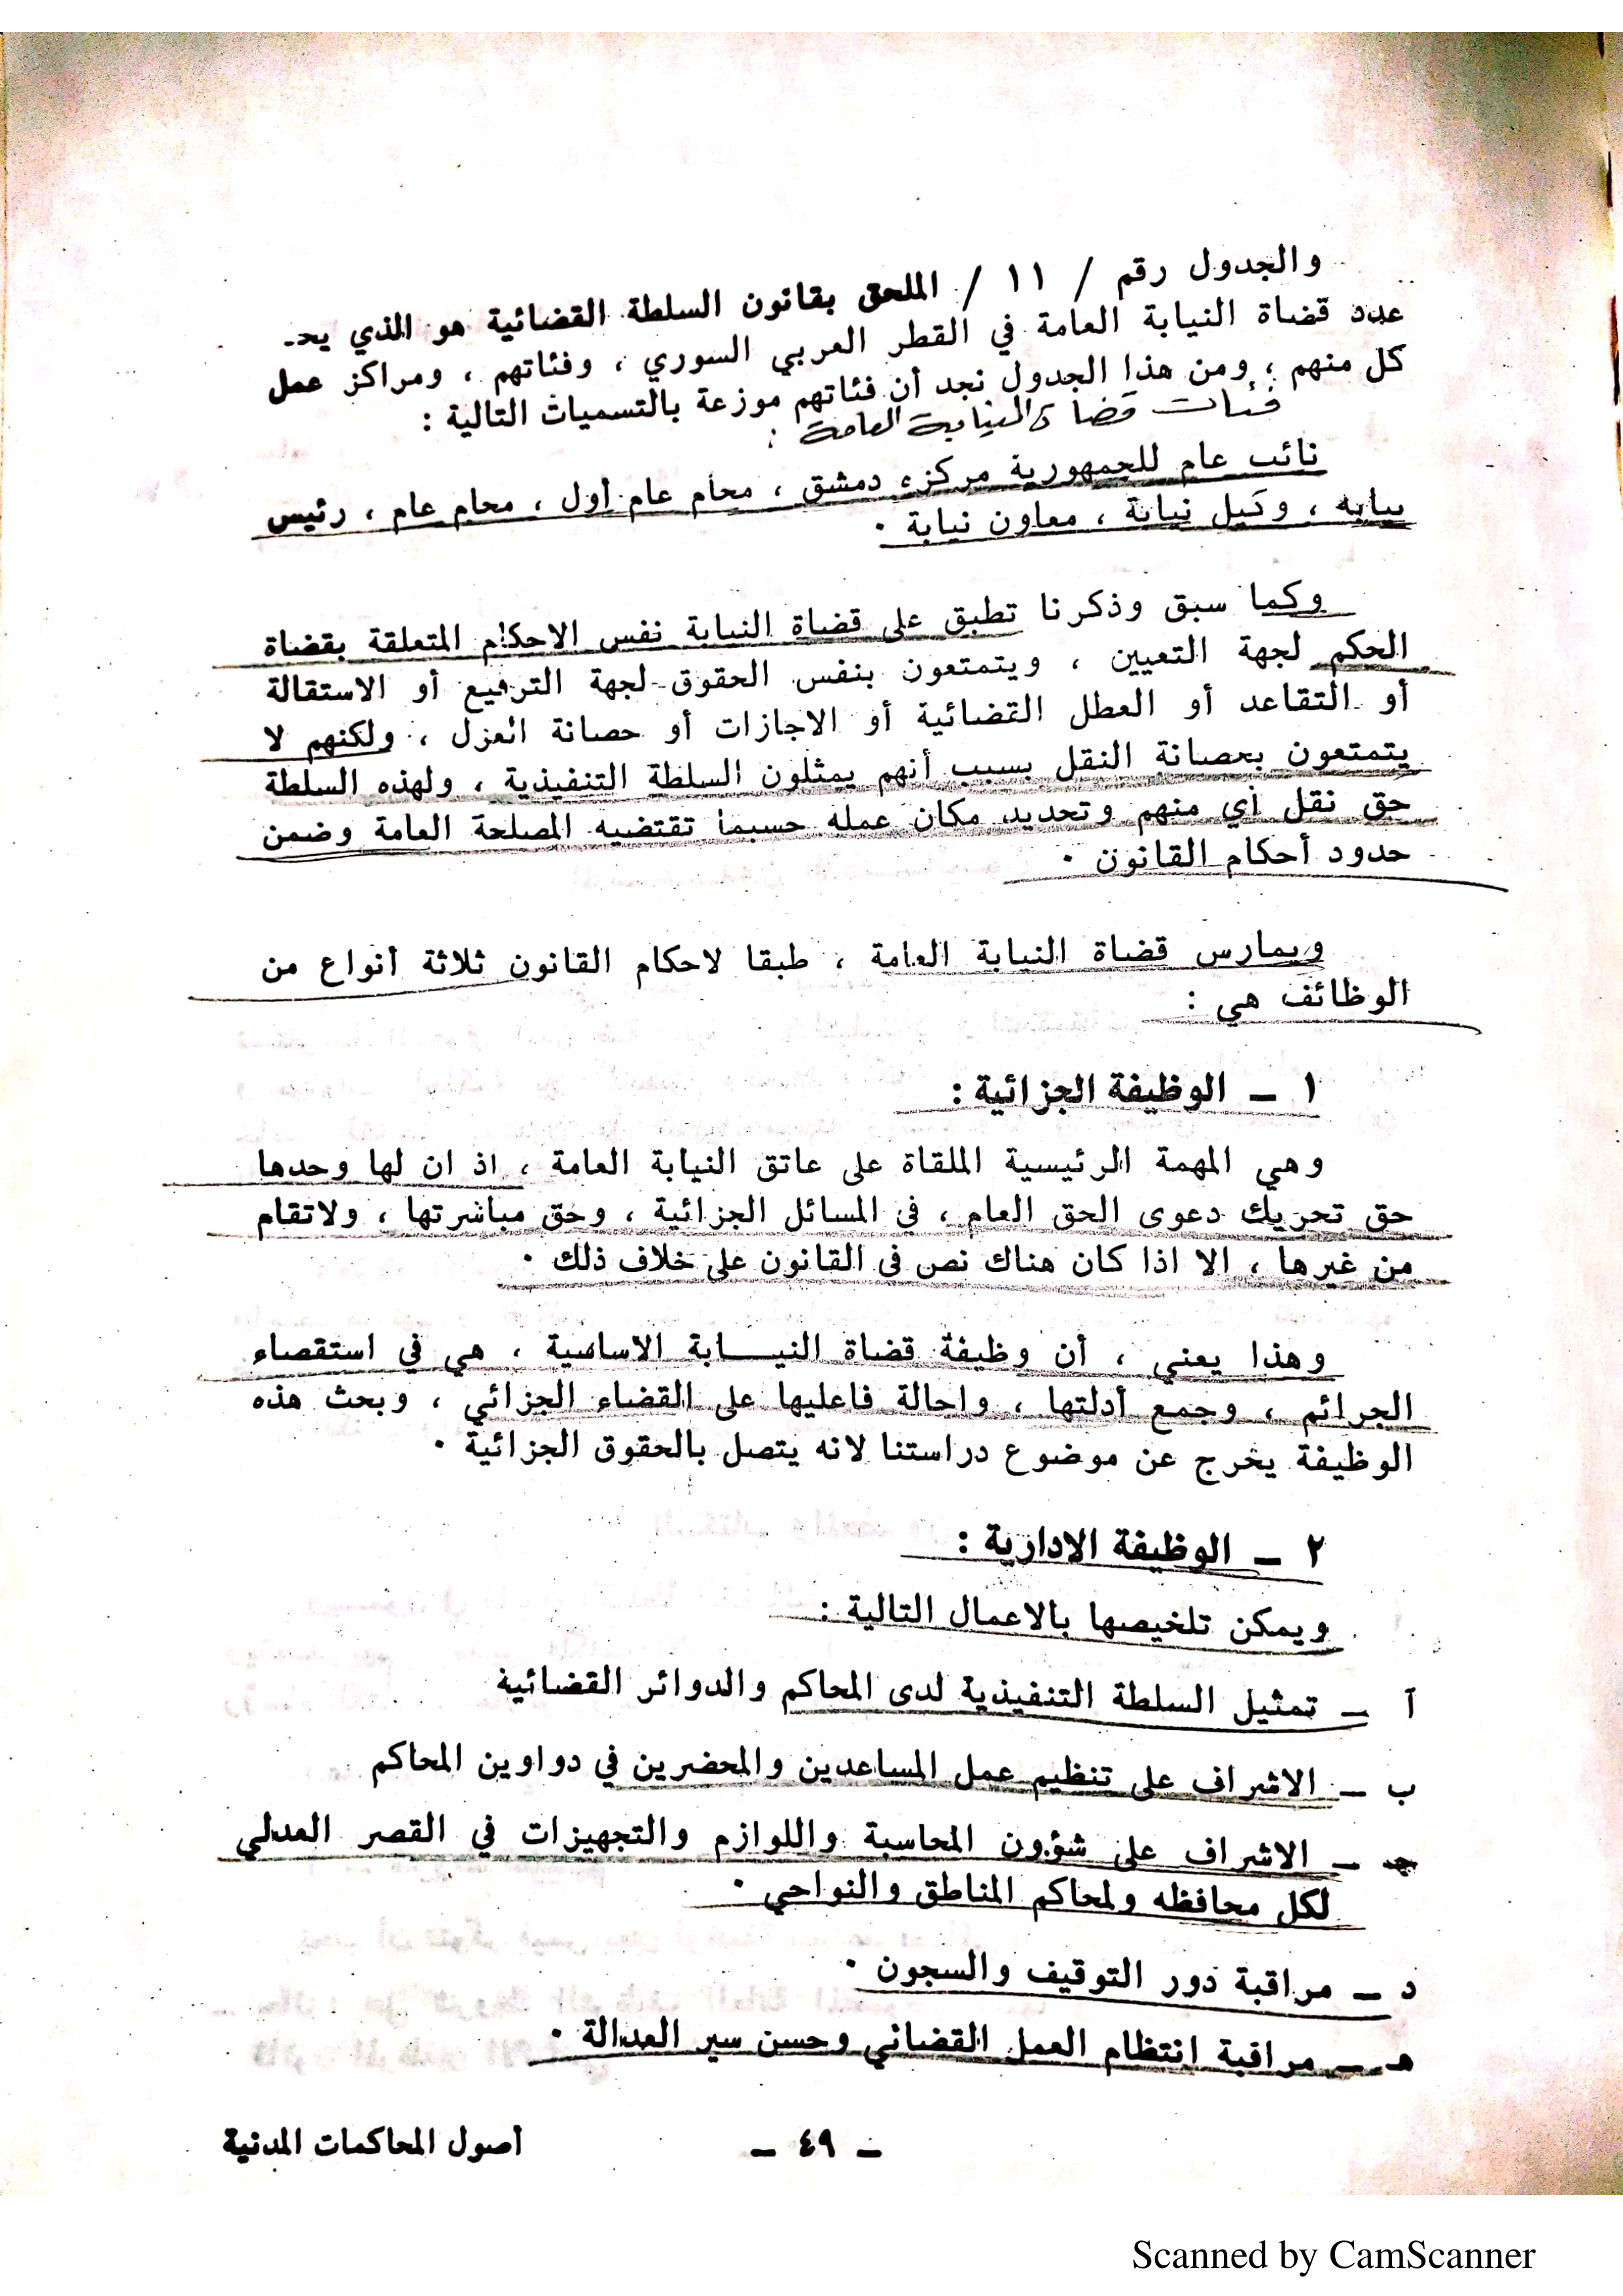 والجدول رقم / ١١ / الملحق بقانون السلطة القضائية هو الذي يحـ
عدد قضاة النيابة العامة في القطر العربي السوري ، وفئاتهم ، ومراكز عمل
كل منهم ، ومن هذا الجدول نجد أن فئاتهم موزعة بالتسميات التالية :
فئات قضاة النيابة العامة :
نائب عام للجمهورية مركزه دمشق ، محام عام أول ، محام عام ، رئيس
نيابة ، وكيل نيابة ، معاون نيابة ٠
وكما سبق وذكرنا تطبق على قضاة النيابة نفس الاحكام المتعلقة بقضاة
الحكم لجهة التعيين ، ويتمتعون بنفس الحقوق لجهة الترفيع أو الاستقالة
أو التقاعد أو العطل القضائية أو الاجازات أو حصانة العزل ، ولكنهم لا
يتمتعون بحصانة النقل بسبب أنهم يمثلون السلطة التنفيذية ، ولهذه السلطة
حق نقل أي منهم وتحديد مكان عمله حسبما تقتضيه المصلحة العامة وضمن
حدود أحكام القانون ٠
ويمارس قضاة النيابة العامة ، طبقا لاحكام القانون ثلاثة أنواع من
الوظائف هي :
١ ــ الوظيفة الجزائية :
وهي المهمة الرئيسية الملقاة على عاتق النيابة العامة ، اذ ان لها وحدها
حق تحريك دعوى الحق العام ، في المسائل الجزائية ، وحق مباشرتها ، ولاتقام
من غيرها ، الا اذا كان هناك نص في القانون على خلاف ذلك ٠
وهذا يعني ، أن وظيفة قضاة النيـــابة الاساسية ، هي في استقصاء
الجرائم ، وجمع أدلتها ، واحالة فاعليها على القضاء الجزائي ، وبحث هذه
الوظيفة يخرج عن موضوع دراستنا لانه يتصل بالحقوق الجزائية ٠
٢ ــ الوظيفة الادارية :
ويمكن تلخيصها بالاعمال التالية :
آ ــ تمثيل السلطة التنفيذية لدى المحاكم والدوائر القضائية
ب ــ الاشراف على تنظيم عمل المساعدين والمحضرين في دواوين المحاكم
جـ ــ الاشراف على شؤون المحاسبة واللوازم والتجهيزات في القصر العدلي
لكل محافظه ولمحاكم المناطق والنواحي ٠
د ــ مراقبة دور التوقيف والسجون ٠
هـ ــ مراقبة انتظام العمل القضائي وحسن سير العدالة ٠
ــ ٤٩ ــ
أصول المحاكمات المدنية
Scanned by CamScanner